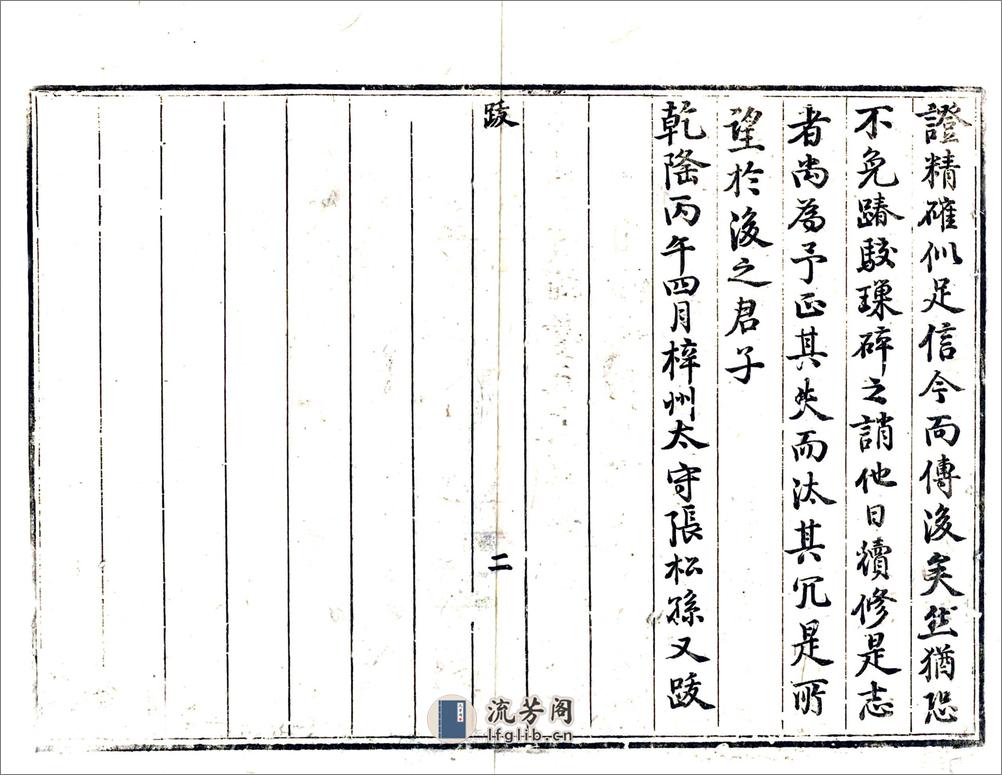 證精確似足信今而傳後矣然猶恐
不免踳駮璅碎之誚他日續修是志
者尚為予正其失而汰其冗是所
望於後之君子
乾隆丙午四月梓州太守張松孫又跋
跋
二
流芳阁
lfglib.cn